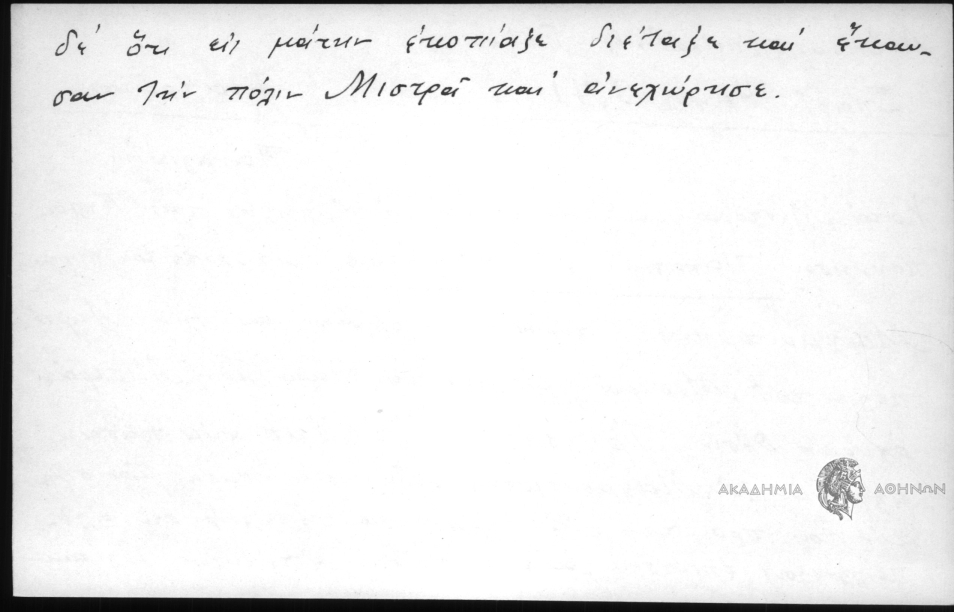 δέ ὅτι εἰς μάτην ἐκοπίαζε διέταξε καί ἔκαυ-
σαν τήν πόλιν Μιστρᾶ καί ἀνεχώρησε.
ΑΚΑΔΗΜΙΑ ΑΘΗΝΩΝ